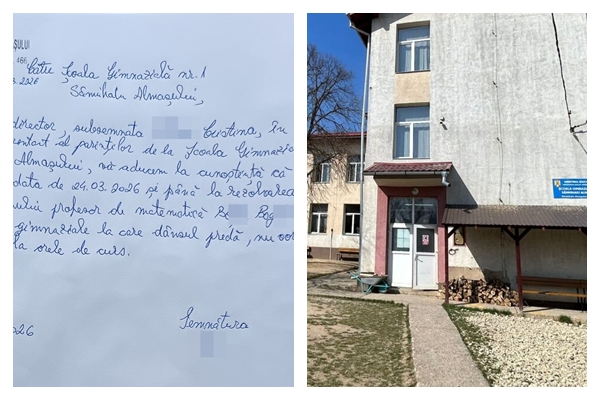 ȘULUI
466
Către Școala Gimnazială nr. 1
3.2026
Sâmihaiu Almașului,
director, subsemnata Cristina, în
contact al părinților de la Școala Gimnazia
Almașului, vă aducem la cunoștență că
data de 24.03.2026 și până la rezolvarea
ului profesor de matematică Bog
gimnaziale la care dânsul predă, nu vor
la orele de curs.
026
Semnătura
ȘCOALA GIMNAZIALĂ